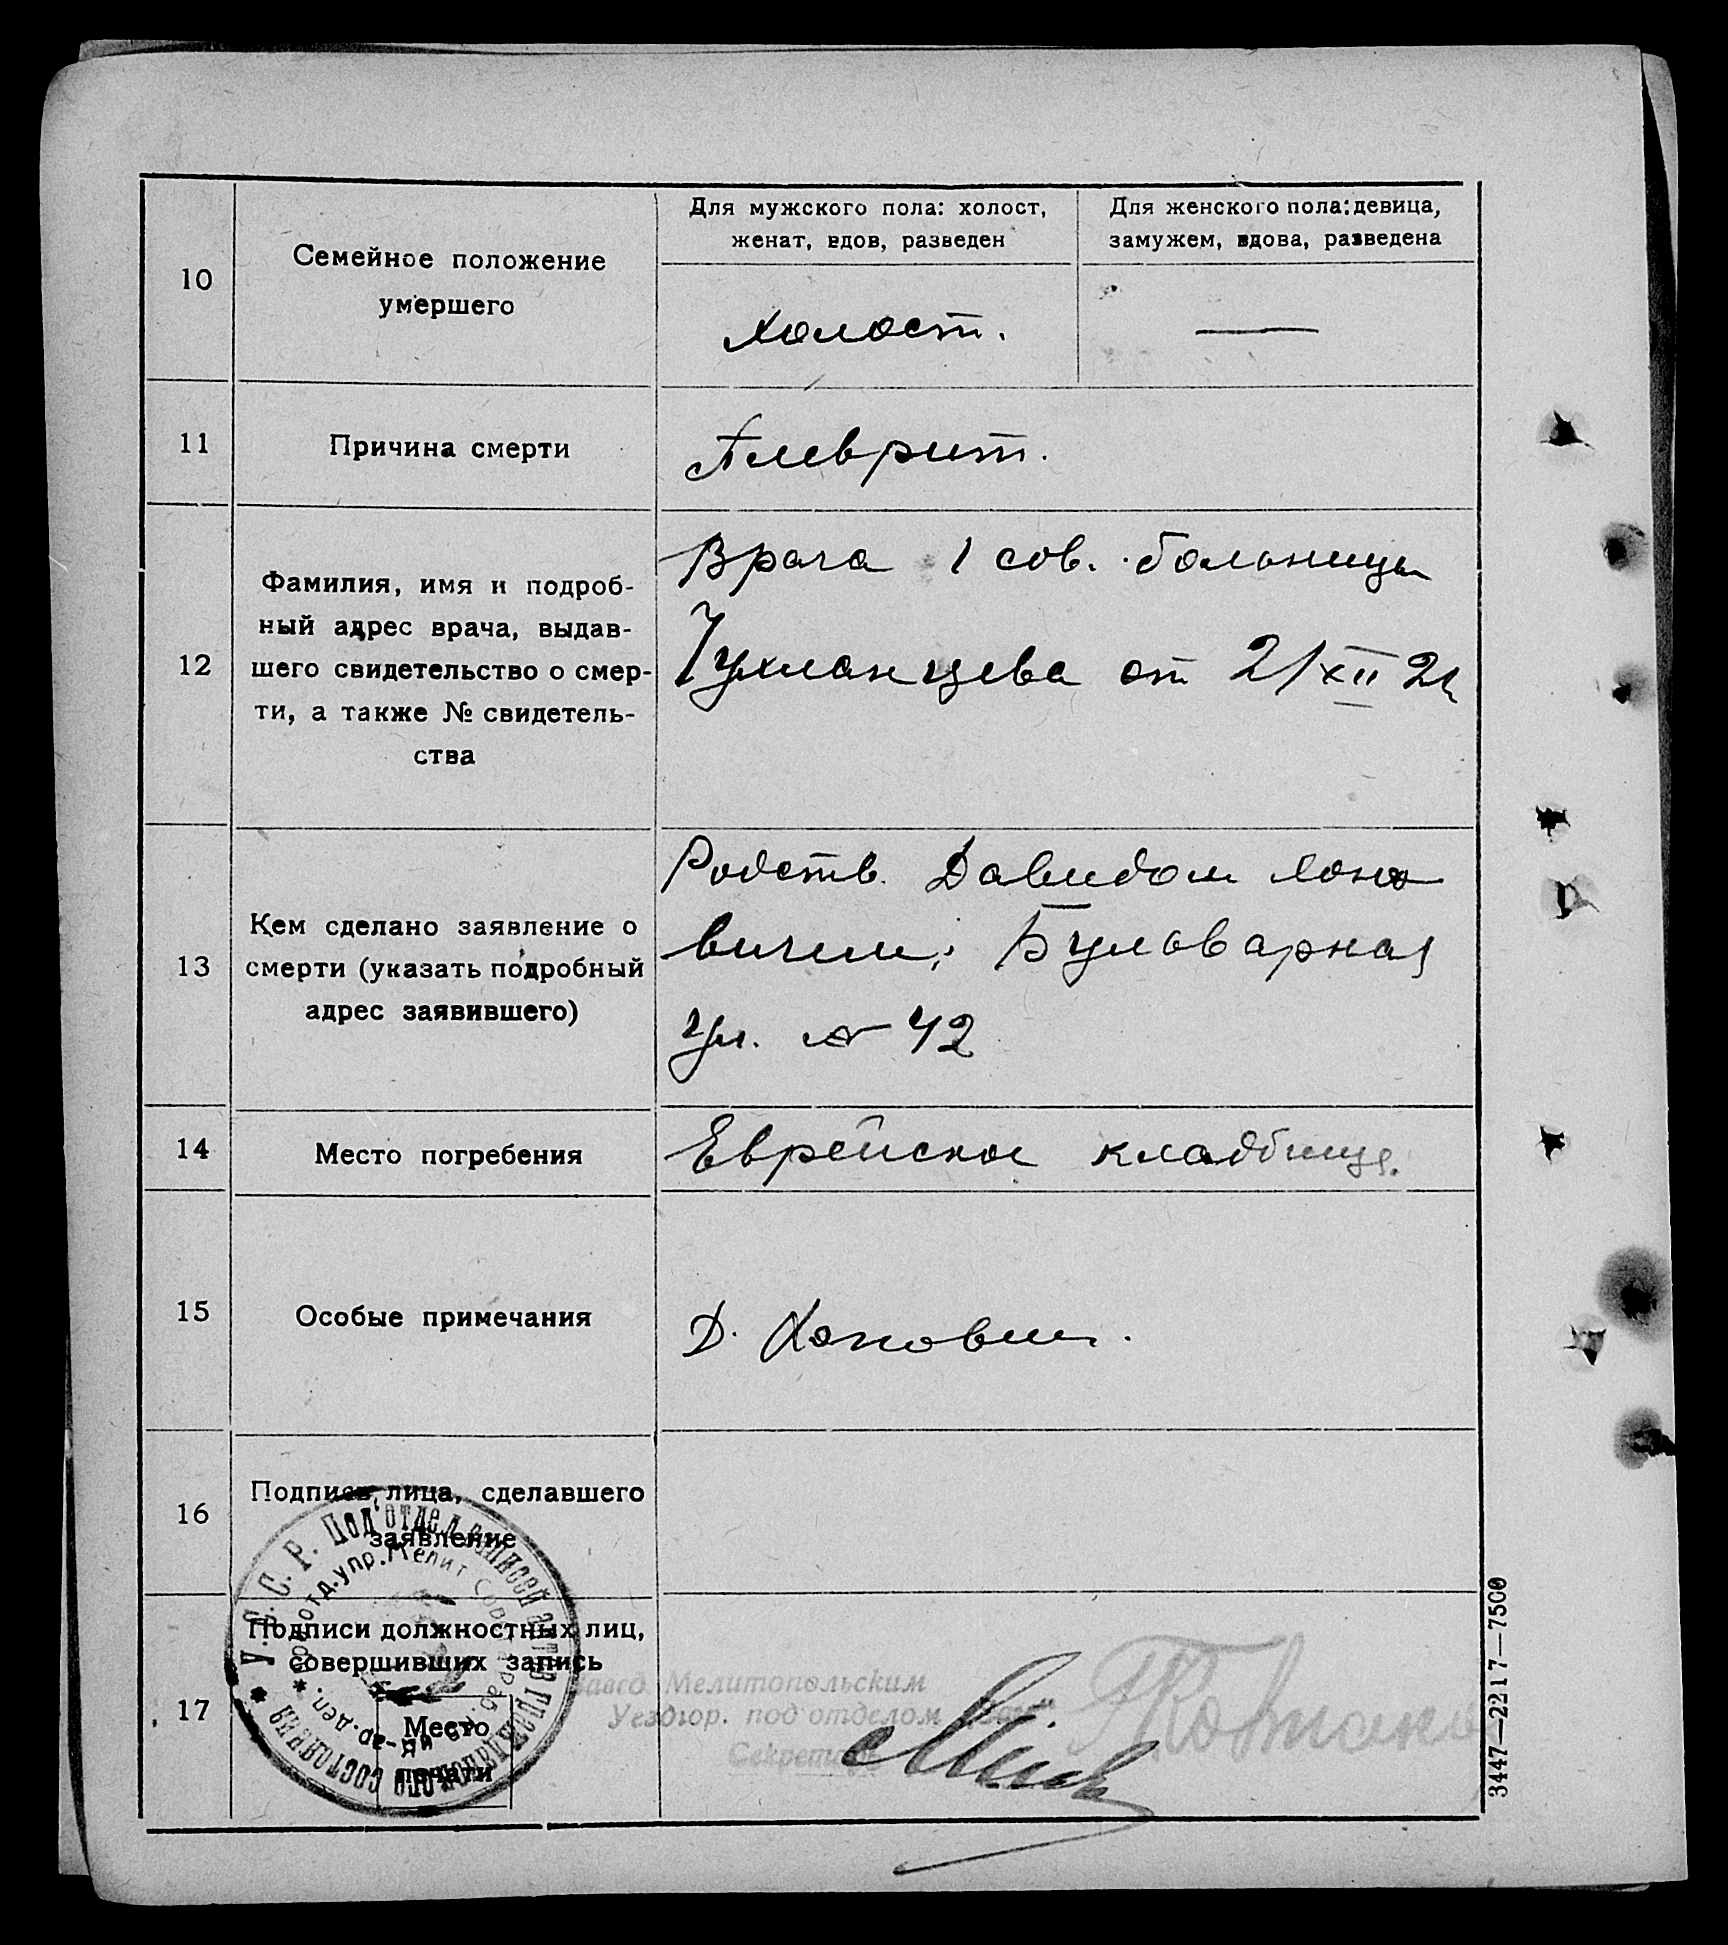 10
Семейное положение
умершего
Для мужского пола: холост,
женат, вдов, разведен
Для женского пола: девица,
замужем, вдова, разведена
Холост.
—
11
Причина смерти
Плеврит.
12
Фамилия, имя и подроб-
ный адрес врача, выдав-
шего свидетельство о смер-
ти, а также № свидетель-
ства
Врача 1 сов. больницы
от 21/XII 21
13
Кем сделано заявление о
смерти (указать подробный
адрес заявившего)
Родств. Давидом
вичем; Бульварная
ул. № 42
14
Место погребения
Еврейское кладбище.
15
Особые примечания
Д.
16
Подпись лица, сделавшего
заявление
17
Подписи должностных лиц,
совершивших запись
Место
печати
У. С. С. Р. Под'отдел записей актов гражданского состояния
Завед. Мелитопольским
Уездгор. под'отделом
Секретарь
3447—2217—7500